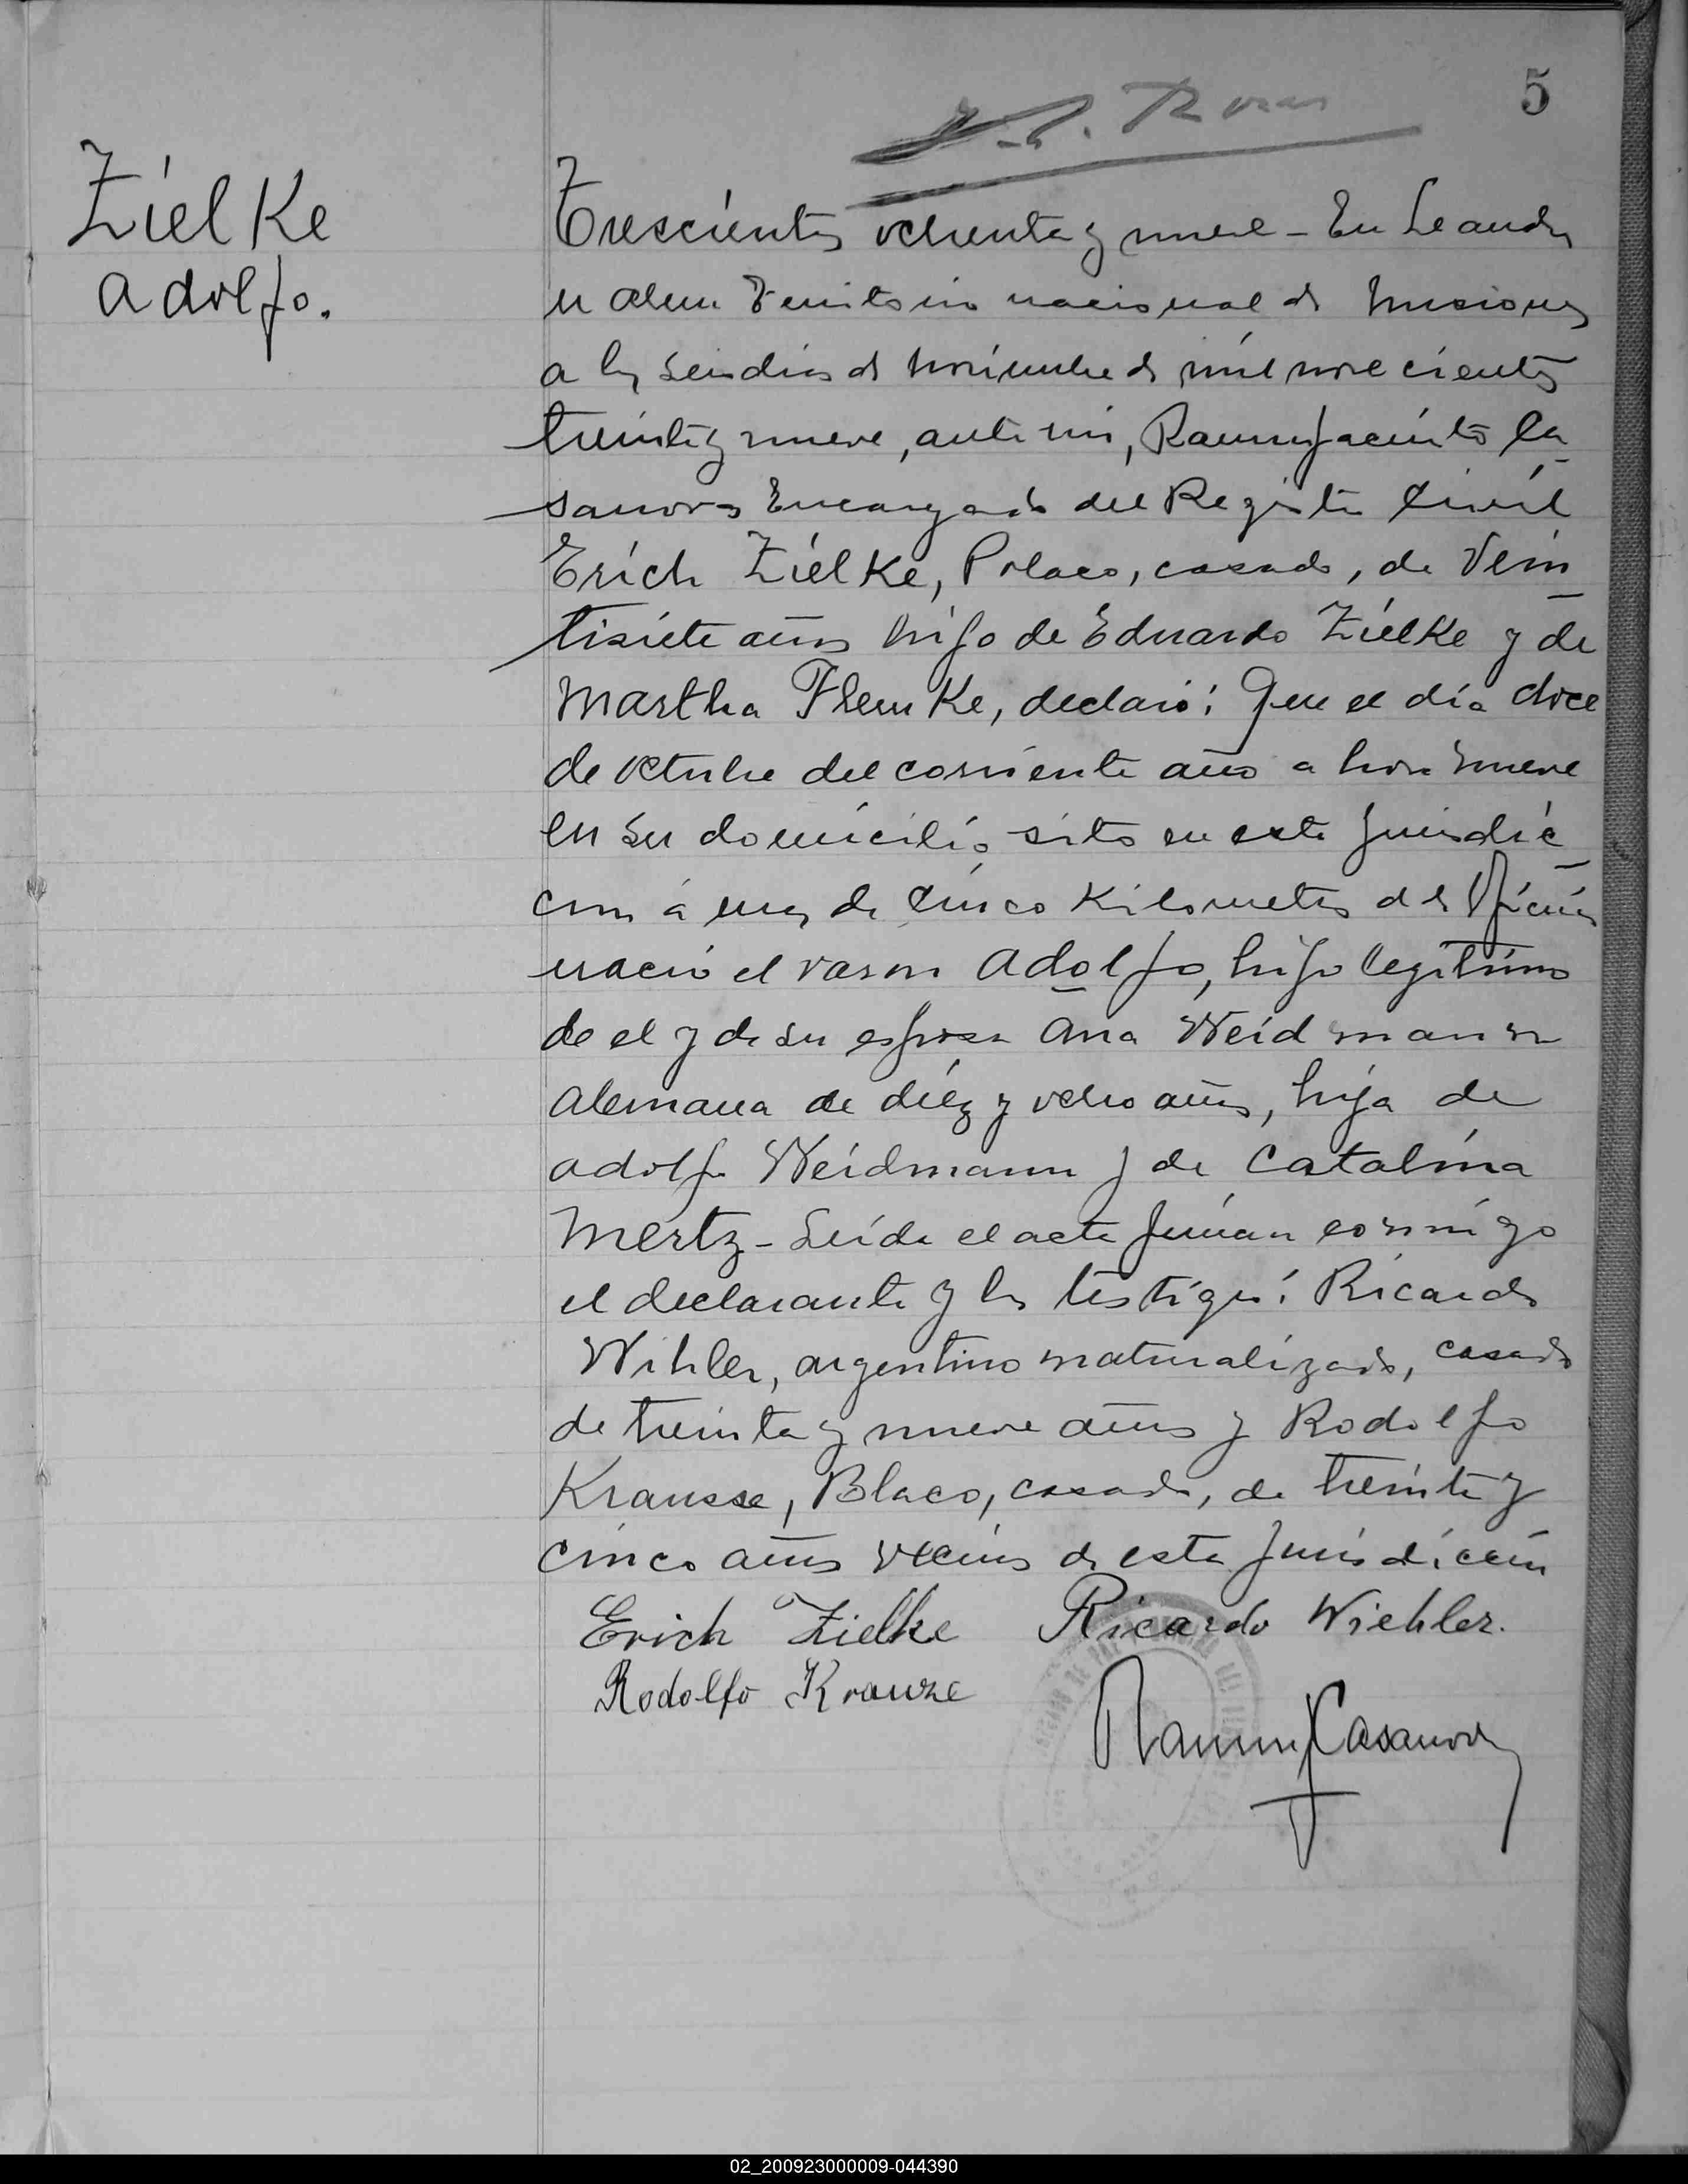 5
Zielke
Adolfo.
Trescientos ochenta y nueve - En Leandro
N Alem Territorio nacional de Misiones
a los seis dias de Noviembre de mil novecientos
treinta y nueve, ante mi, Ramon Jacinto Ca-
sanova Encargado del Registro Civil
Erich Zielke, Polaco, casado, de Vein-
tisiete años hijo de Eduardo Zielke y de
Martha Flemke, declaró: Que el día doce
de octubre del corriente año a hora nueve
en su domicilio sito en esta jurisdic-
cion á mas de cinco Kilometros de la Oficina
nació el varon Adolfo, hijo legítimo
de el y de su esposa Ana Weidmann
Alemana de diéz y ocho años, hija de
Adolfo Weidmann y de Catalina
Mertz - Leída el acta firman conmigo
el declarante y los testigos: Ricardo
Wihler, argentino naturalizado, casado
de treinta y nueve años y Rodolfo
Krausse, Polaco, casado, de treinta y
cinco años vecinos de esta jurisdiccion
Erich Zielke Ricardo Wiehler.
Rodolfo Krauze
Ramon J Casanova
02_200923000009-044390